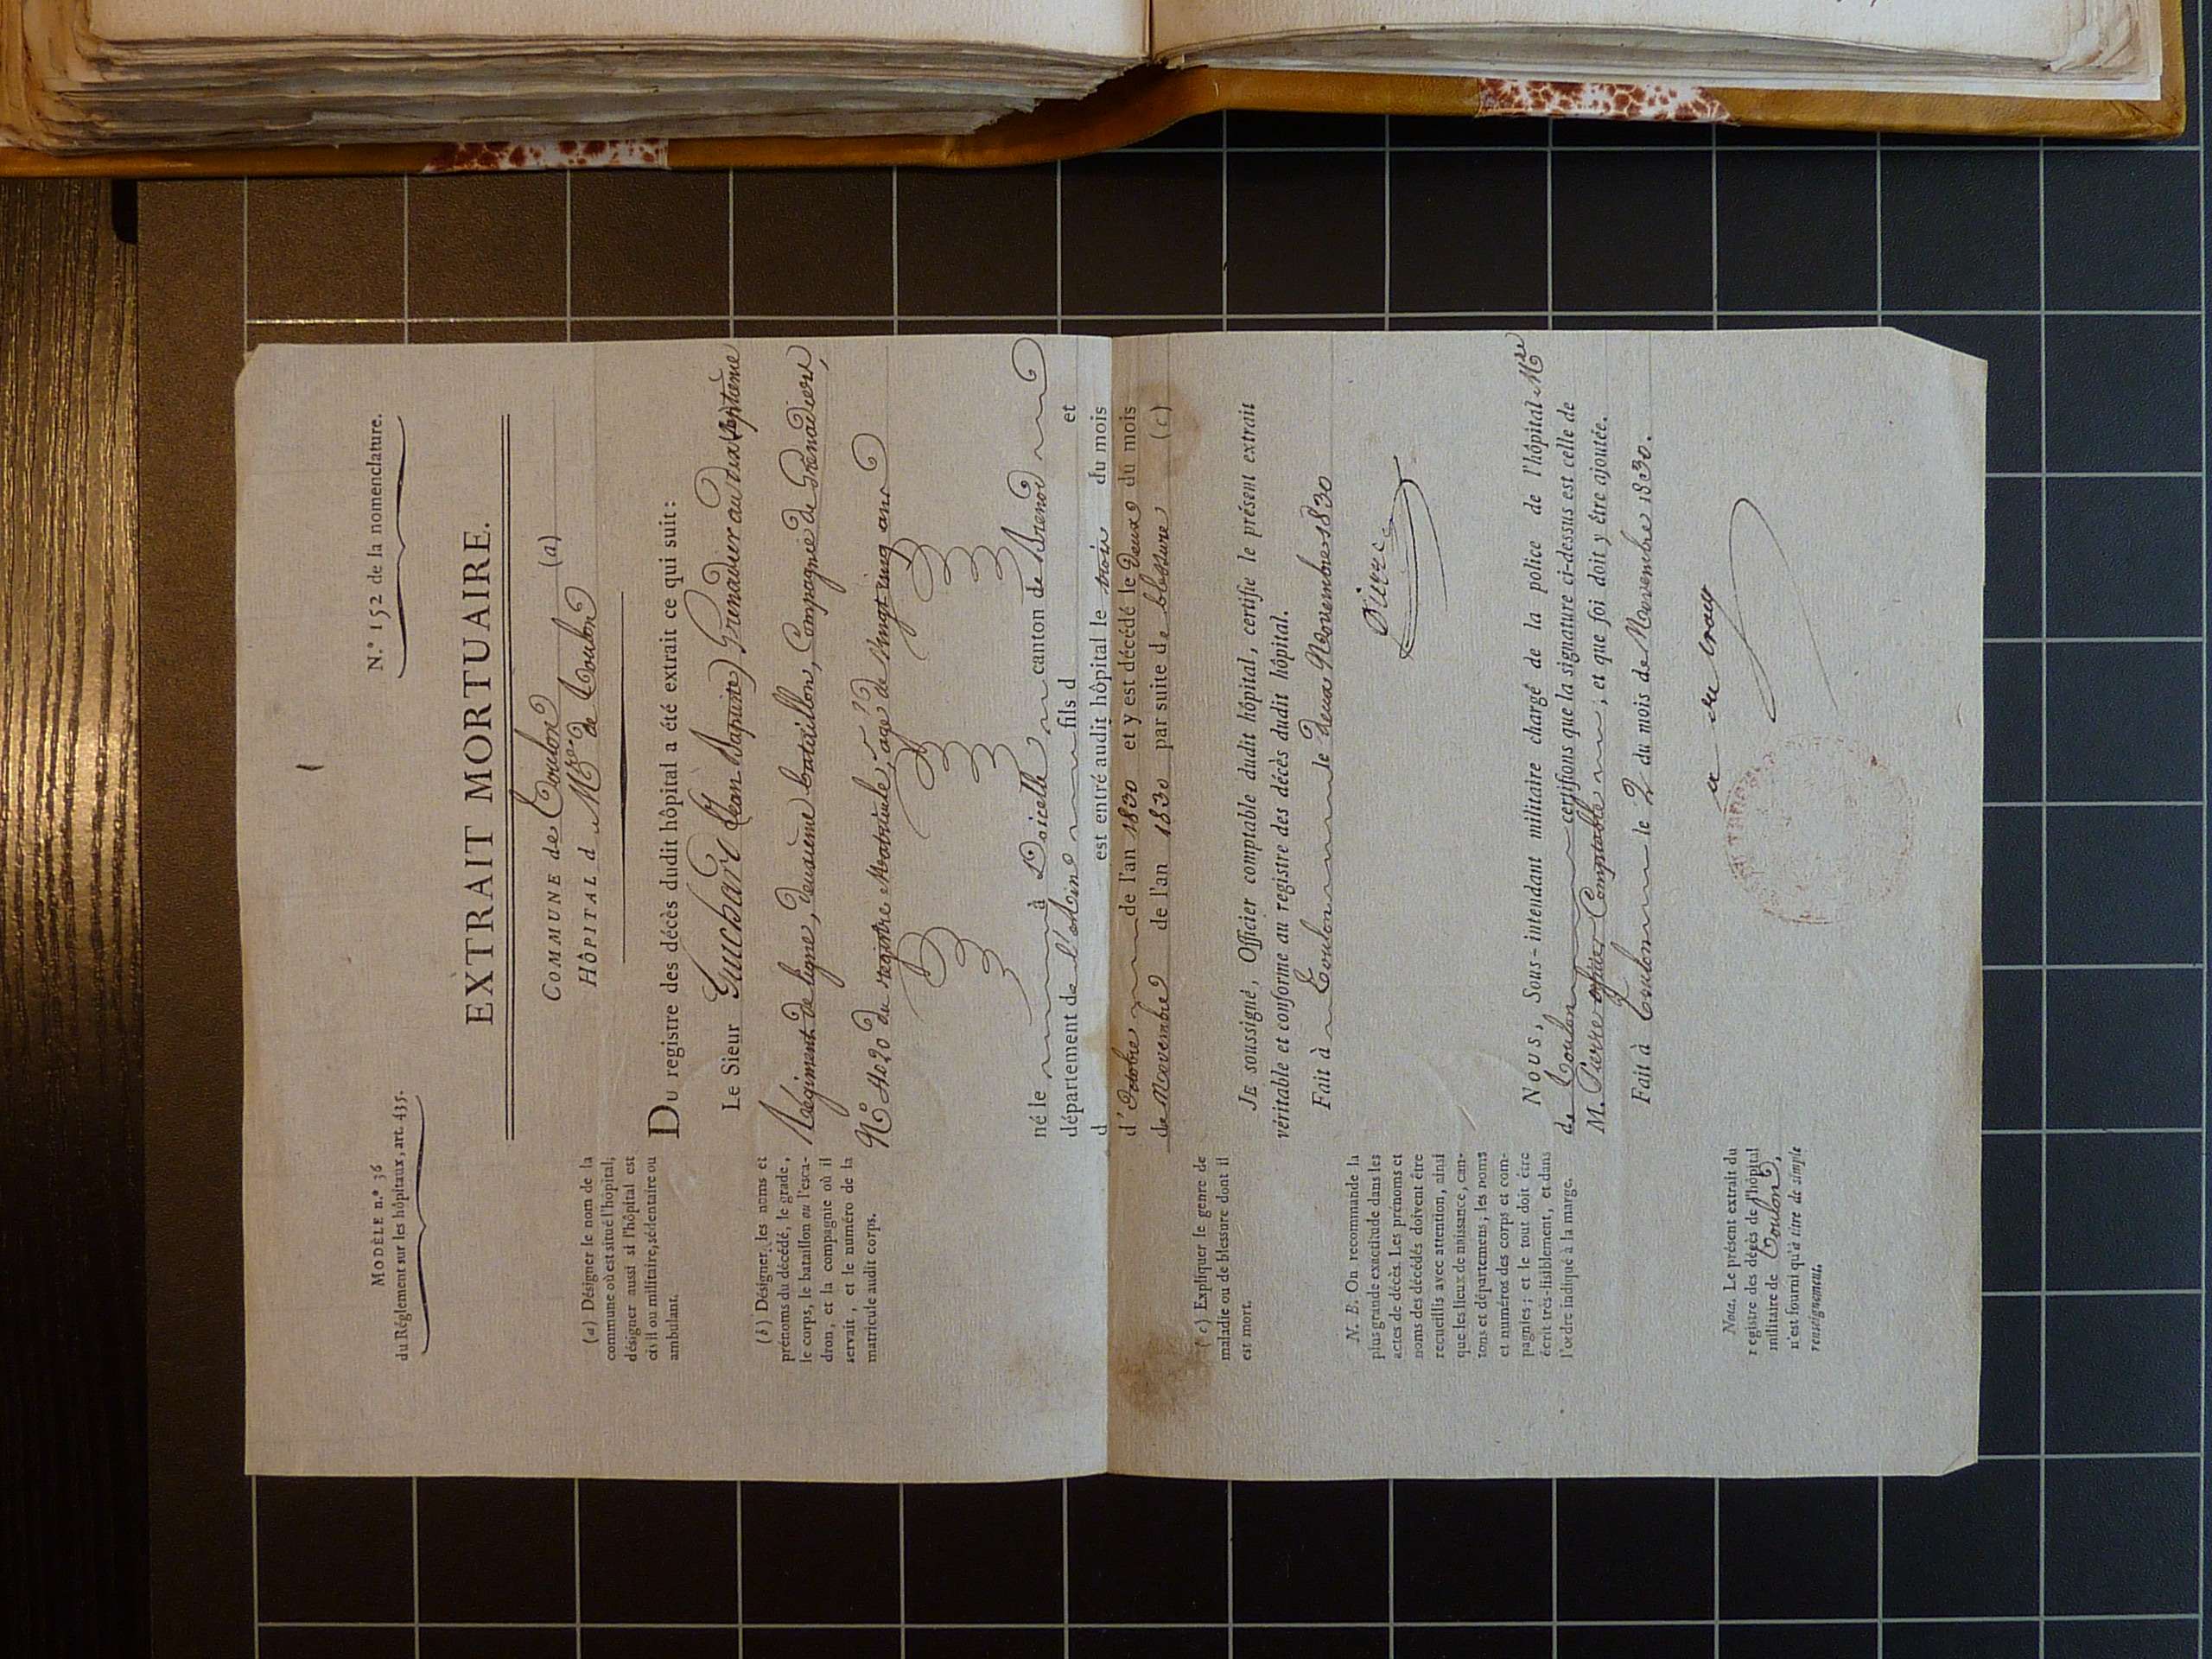 MODÈLE n.° 36
du Réglement sur les hôpitaux, art. 435.
N.° 152 de la nomenclature.
EXTRAIT MORTUAIRE.
COMMUNE de Toulon
HÔPITAL d Mre de Toulon (a)
(a) Désigner le nom de la
commune où est situé l'hôpital;
désigner aussi si l'hôpital est
civil ou militaire, sédentaire ou
ambulant.
DU registre des décès dudit hôpital a été extrait ce qui suit:
Le Sieur Guichard (Jean Baptiste) Grenadier au dix septième
Régiment de ligne, deuxième bataillon, Compagnie de Grenadiers,
N° 4020 du registre Matricule, agé de Vingt cinq ans
(b) Désigner les noms et
prénoms du décédé, le grade,
le corps, le bataillon ou l'esca-
dron, et la compagnie où il
servait, et le numéro de la
matricule audit corps.
né le à canton de Brenod
département de l'ain fils d et
d est entré audit hôpital le trois du mois
d'Octobre de l'an 1830 et y est décédé le deux du mois
de Novembre de l'an 1830 par suite de blessure (c)
(c) Expliquer le genre de
maladie ou de blessure dont il
est mort.
JE soussigné, Officier comptable dudit hôpital, certifie le présent extrait
véritable et conforme au registre des décès dudit hôpital.
Fait à Toulon le deux Novembre 1830
Pierre
N. B. On recommande la
plus grande exactitude dans les
actes de décès. Les prénoms et
noms des décédés doivent être
recueillis avec attention, ainsi
que les lieux de naissance, can-
tons et départemens; les noms
et numéros des corps et com-
pagnies; et le tout doit être
écrit très-lisiblement, et dans
l'ordre indiqué à la marge.
NOUS, Sous-intendant militaire chargé de la police de l'hôpital Mre
de Toulon certifions que la signature ci-dessus est celle de
M. Pierre offier Comptable, et que foi doit y être ajoutée.
Fait à Toulon le 2 du mois de Novembre 1830.
Nota. Le présent extrait du
registre des décès de l'hôpital
militaire de Toulon,
n'est fourni qu'à titre de simple
renseignement.